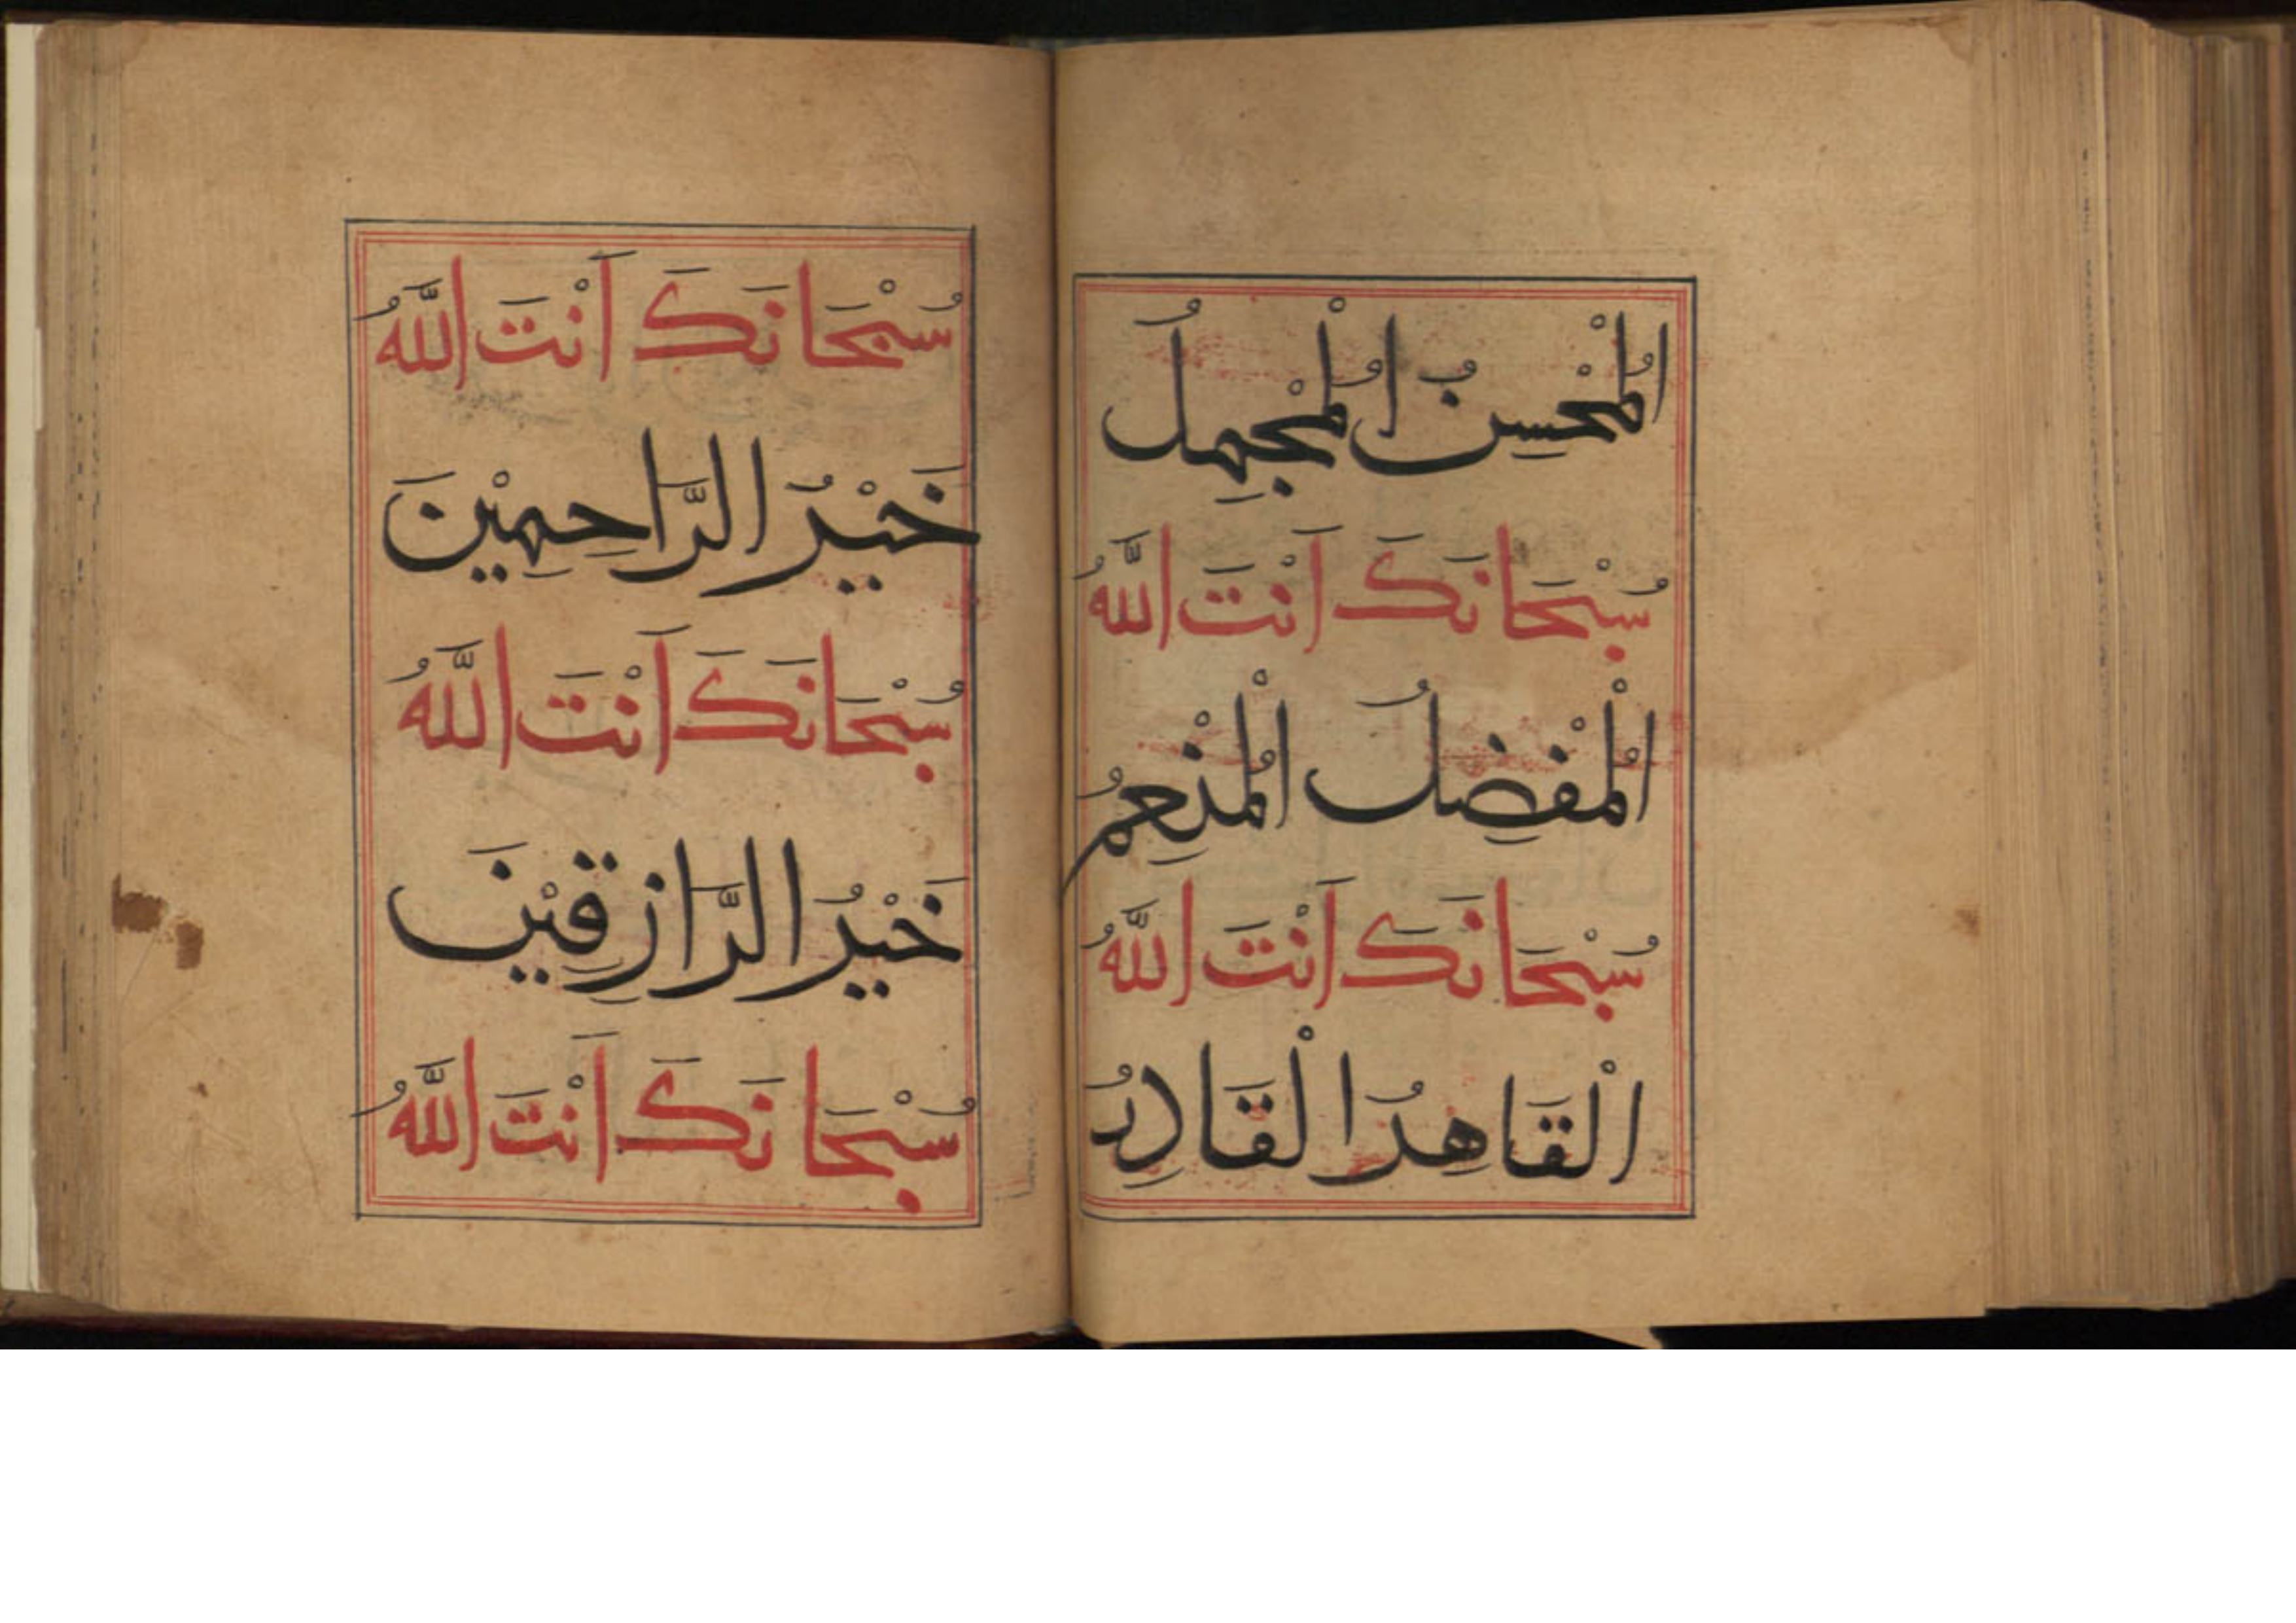 اَلْمُحْسِنُ الْمُجْمِلُ
سُبْحَانَكَ اَنْتَ اللَّهُ
الْمُفْضِلُ الْمُنْعِمُ
سُبْحَانَكَ اَنْتَ اللَّهُ
الْقَاهِرُ الْقَادِرُ
سُبْحَانَكَ اَنْتَ اللَّهُ
خَيْرُ الرَّاحِمِيْنَ
سُبْحَانَكَ اَنْتَ اللَّهُ
خَيْرُ الرَّازِقِيْنَ
سُبْحَانَكَ اَنْتَ اللَّهُ